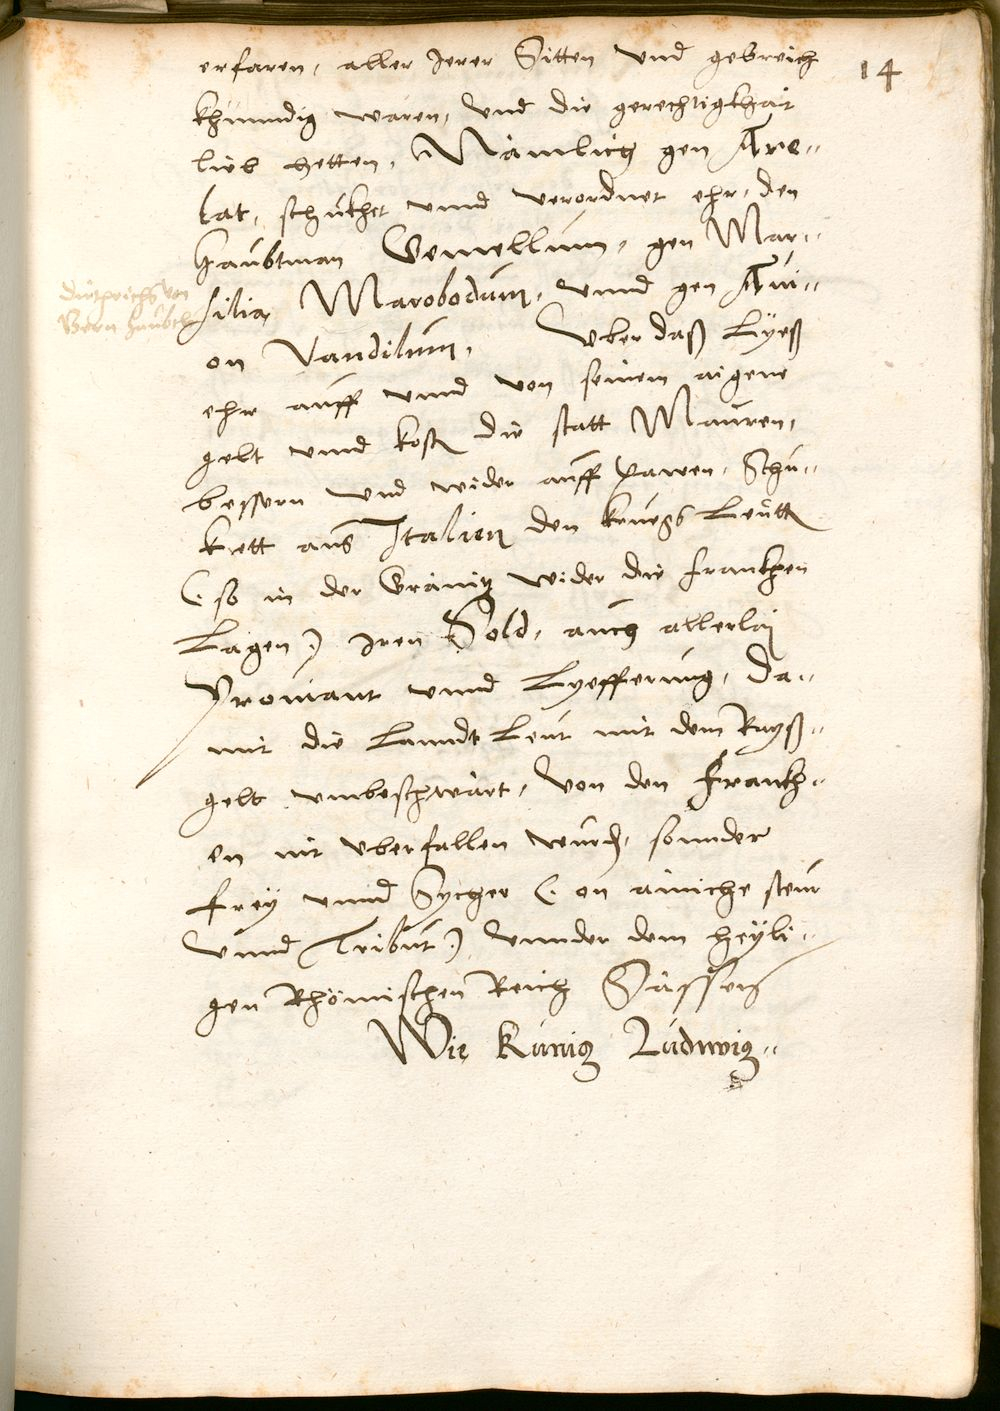 14
erfaren, aller Jerer Sitten vnd gebreich
khunndig waren, vnd die gerechtigkhait
lieb hetten, Nämlich gen Are-
lat, schükhet vnnd verordnet ehr, den
Haubtman Gemellum, gen Mar-
silia, Marobodum, vnnd gen Aui-
Dietherichs von
Bern haubtl
on Vandilum, Vber daß Lÿeß
ehr auff vnnd von seinem aigene
gelt vnnd kosten die statt Mauren,
bessern vnd wider auff pawen, Schü-
kett aus Italien den kruegs Leütten
(: so in der Gränitz wider die franckhen
Lagen :) Jren Sold, auch allerlaj
Prouiant vnnd Lyefferung, da-
mit die Lanndt Leut mit dem Rayß-
gelt vnbeschwärt, Von den Franckh-
en nit vberfallen wurden, sonnder
frey vnnd Sycher (: on ainiche steur
vnnd Tribut :) vnnder dem Heÿli-
gen Rhömischen Reich Sässen
Wie Künig Ludwig-